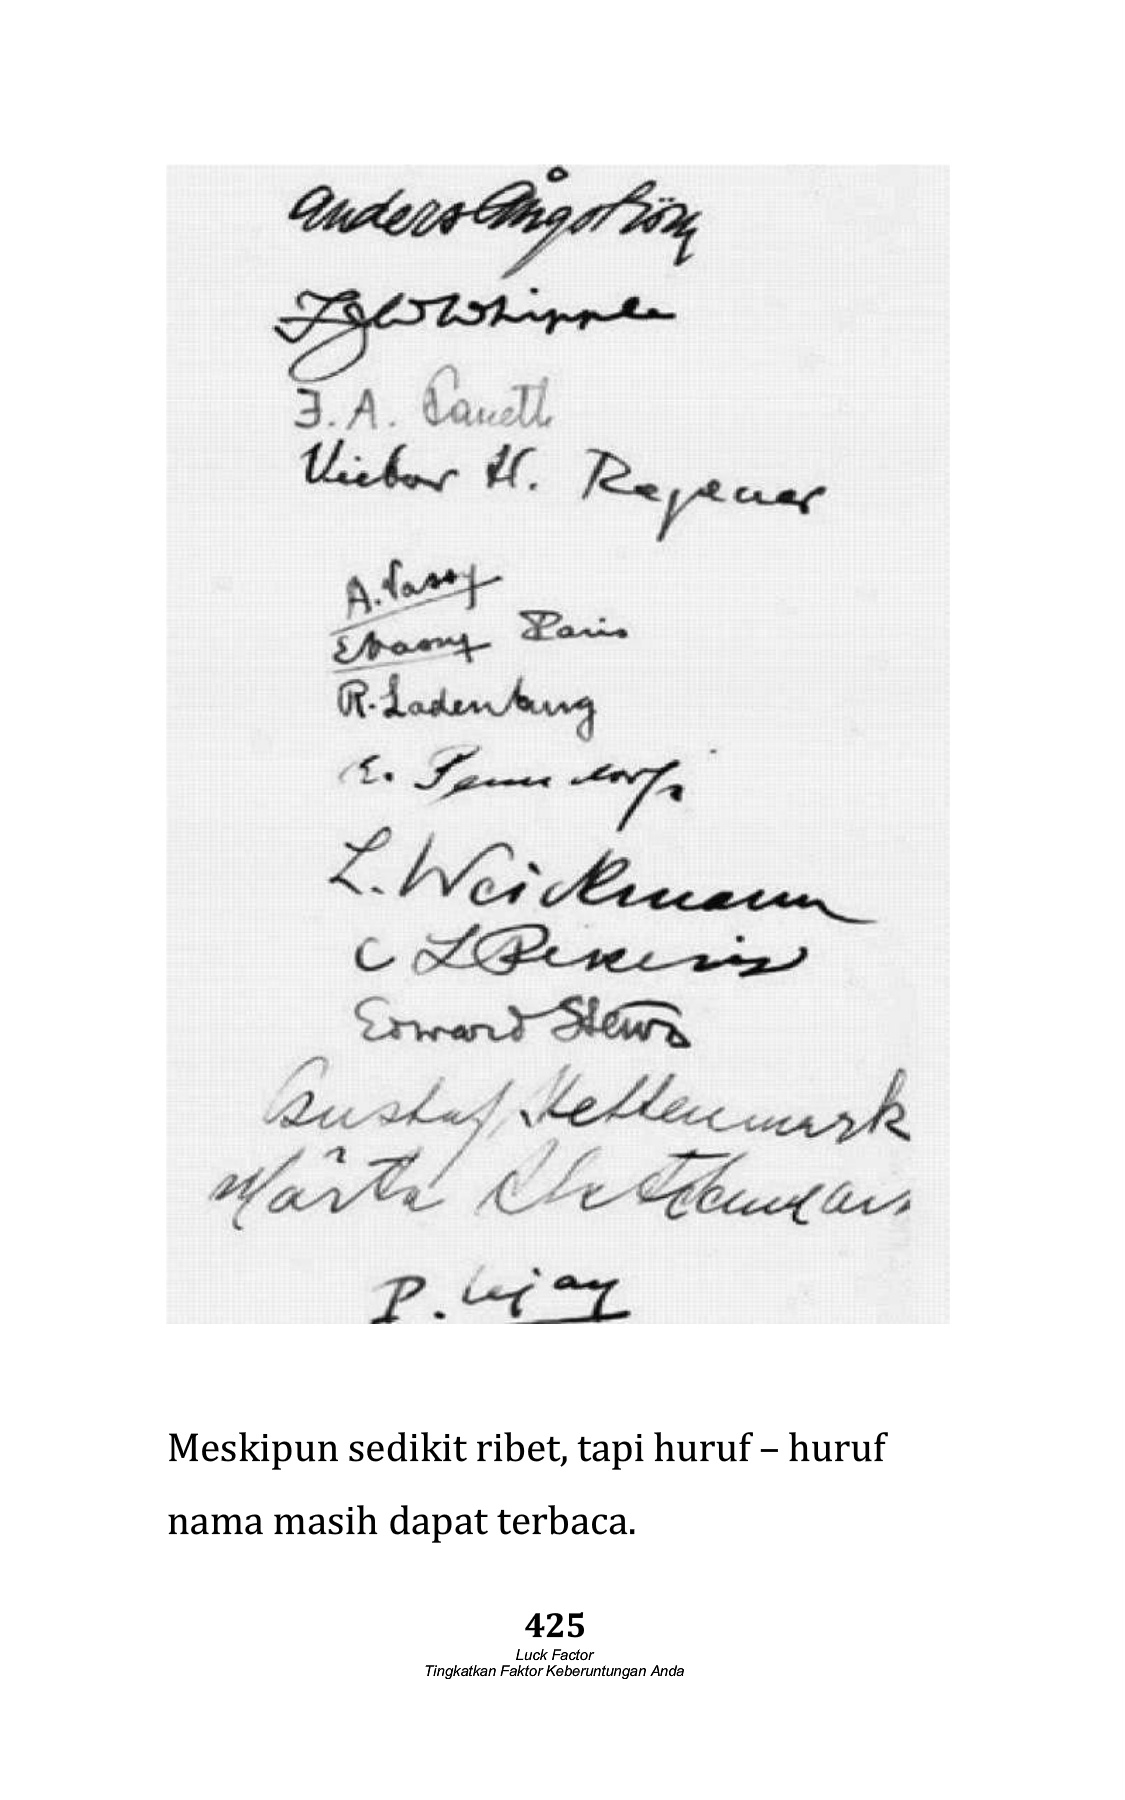 Anders Ångström
FJW Whipple
F.A. Paneth
Victor H. Regener
A. Vassy
E Vassy Paris
R. Ladenburg
E. Penndorf
L. Weickmann
C L Pekeris
Edward Stenz
Gustaf Kettenmark
Märta
P. Lejay
Meskipun sedikit ribet, tapi huruf – huruf
nama masih dapat terbaca.
425
Luck Factor
Tingkatkan Faktor Keberuntungan Anda